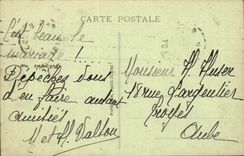 CARTE POSTALE
C'est beau le
mariage !.....
Dépêchez vous
d'en faire autant
amitiés
M et H. Valton
Monsieur H.
18 rue Largentier
Troyes
Aube